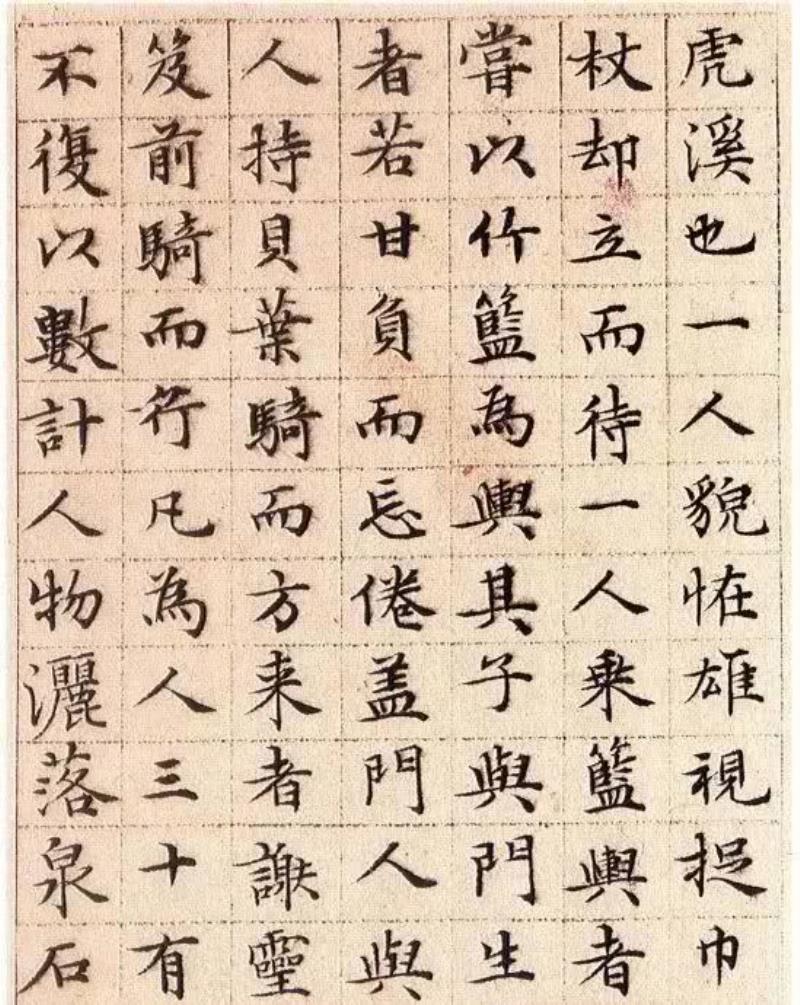 虎溪也一人貌恠雄視捉巾
杖却立而待一人乗籃輿者
嘗以竹籃為輿其子與門生
者若甘負而忘倦盖門人與
人持貝葉騎而方来者謝靈
笈前騎而行凡為人三十有
不復以數計人物灑落泉石